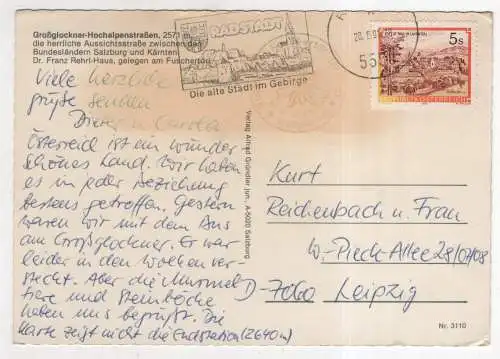 Großglockner-Hochalpenstraßen, 2571 m
die herrliche Aussichtsstraße zwischen den
Bundesländern Salzburg und Kärnten
Dr. Franz Rehrl-Haus, gelegen am Fuschertörl
RADSTADT
Die alte Stadt im Gebirge
5s
REPUBLIK ÖSTERREICH
Viele herzliche
grüße senden
Dieter u. Carola
Österreich ist ein wunder
schönes Land. Wir haben
es in jeder Beziehung
bestens getroffen. Gestern
waren wir mit dem Bus
am Großglockner. Er war
leider in den Wolken ver-
steckt. Aber die Murmel
tiere und Steinböcke
haben uns begrüßt. Die
Karte zeigt nicht die Endstation (2640 m)
Verlag Alfred Gründler jun. A-5020 Salzburg
Kurt
Reichenbach u. Frau
W.-Pieck-Allee 28/07/08
D-7060 Leipzig
Nr. 3110